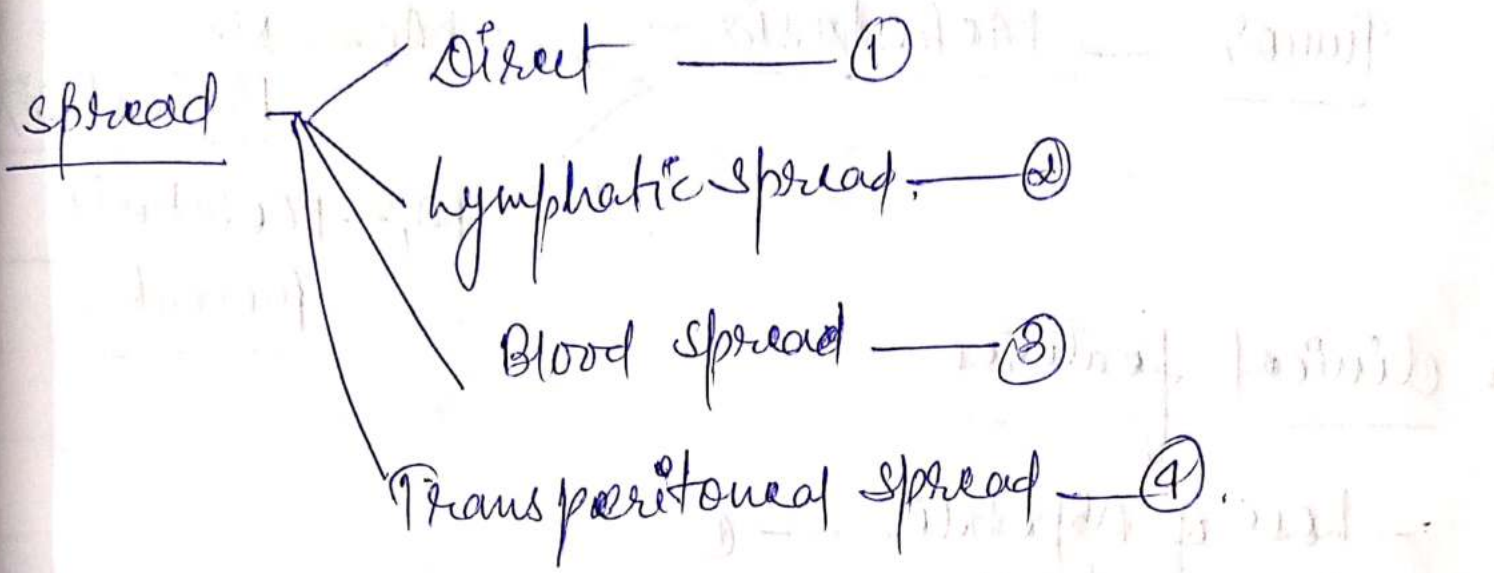 Direct ①
spread
Lymphatic spread. ②
Blood spread ③
Transperitoneal spread ④.